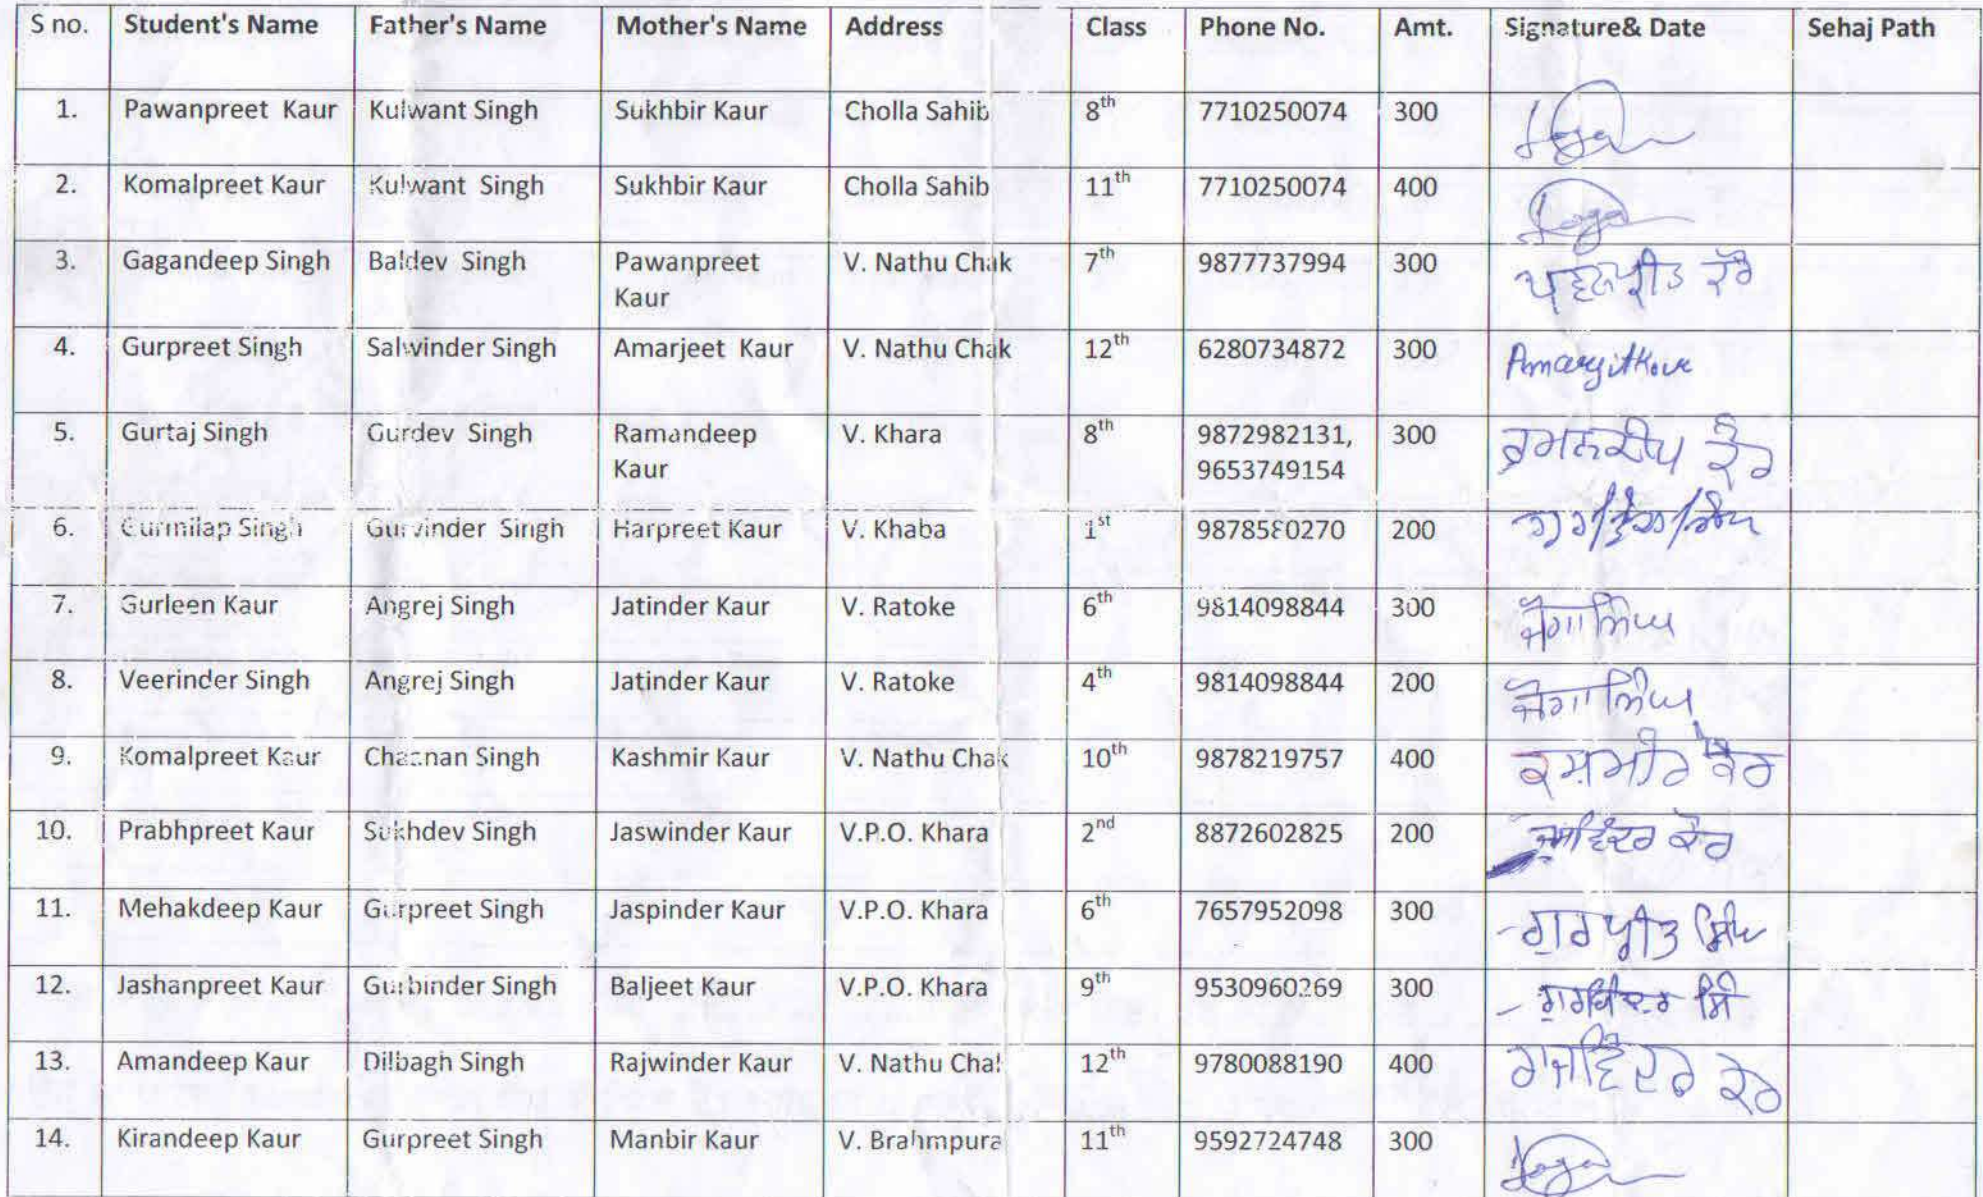 S no. Student's Name Father's Name Mother's Name Address Class Phone No. Amt. Signature& Date Sehaj Path
1. Pawanpreet Kaur Kulwant Singh Sukhbir Kaur Cholla Sahib 8th 7710250074 300
2. Komalpreet Kaur Kulwant Singh Sukhbir Kaur Cholla Sahib 11th 7710250074 400
3. Gagandeep Singh Baldev Singh Pawanpreet V. Nathu Chak 7th 9877737994 300 ਪਵਨਪ੍ਰੀਤ ਕੌਰ
Kaur
4. Gurpreet Singh Salwinder Singh Amarjeet Kaur V. Nathu Chak 12th 6280734872 300 Amarjit Kour
5. Gurtaj Singh Gurdev Singh Ramandeep V. Khara 8th 9872982131, 300 ਰਮਨਦੀਪ ਕੌਰ
Kaur 9653749154
6. Gurmilap Singh Gurvinder Singh Harpreet Kaur V. Khaba 1st 9878580270 200
7. Gurleen Kaur Angrej Singh Jatinder Kaur V. Ratoke 6th 9814098844 300 ਜੋਗਾ ਸਿੰਘ
8. Veerinder Singh Angrej Singh Jatinder Kaur V. Ratoke 4th 9814098844 200 ਜੋਗਾ ਸਿੰਘ
9. Komalpreet Kaur Chaanan Singh Kashmir Kaur V. Nathu Chak 10th 9878219757 400 ਕਸ਼ਮੀਰ ਕੌਰ
10. Prabhpreet Kaur Sukhdev Singh Jaswinder Kaur V.P.O. Khara 2nd 8872602825 200 ਜਸਵਿੰਦਰ ਕੌਰ
11. Mehakdeep Kaur Gurpreet Singh Jaspinder Kaur V.P.O. Khara 6th 7657952098 300 -ਗੁਰਪ੍ਰੀਤ ਸਿੰਘ
12. Jashanpreet Kaur Gurbinder Singh Baljeet Kaur V.P.O. Khara 9th 9530960269 300 - ਗੁਰਬਿੰਦਰ ਸਿੰ
13. Amandeep Kaur Dilbagh Singh Rajwinder Kaur V. Nathu Chak 12th 9780088190 400 ਰਾਜਵਿੰਦਰ ਕੌਰ
14. Kirandeep Kaur Gurpreet Singh Manbir Kaur V. Brahmpura 11th 9592724748 300